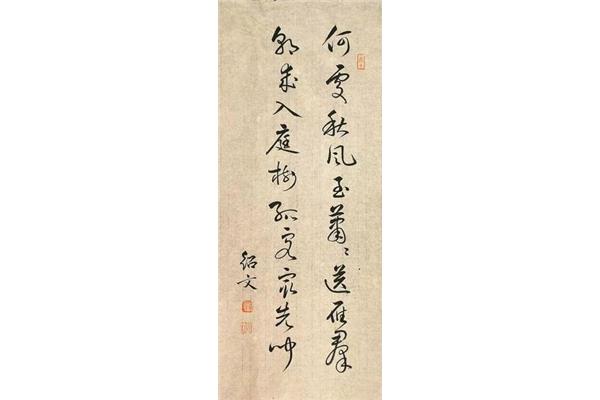 何處秋風至蕭〻送雁羣
朝來入庭樹孤客最先聞
紹文